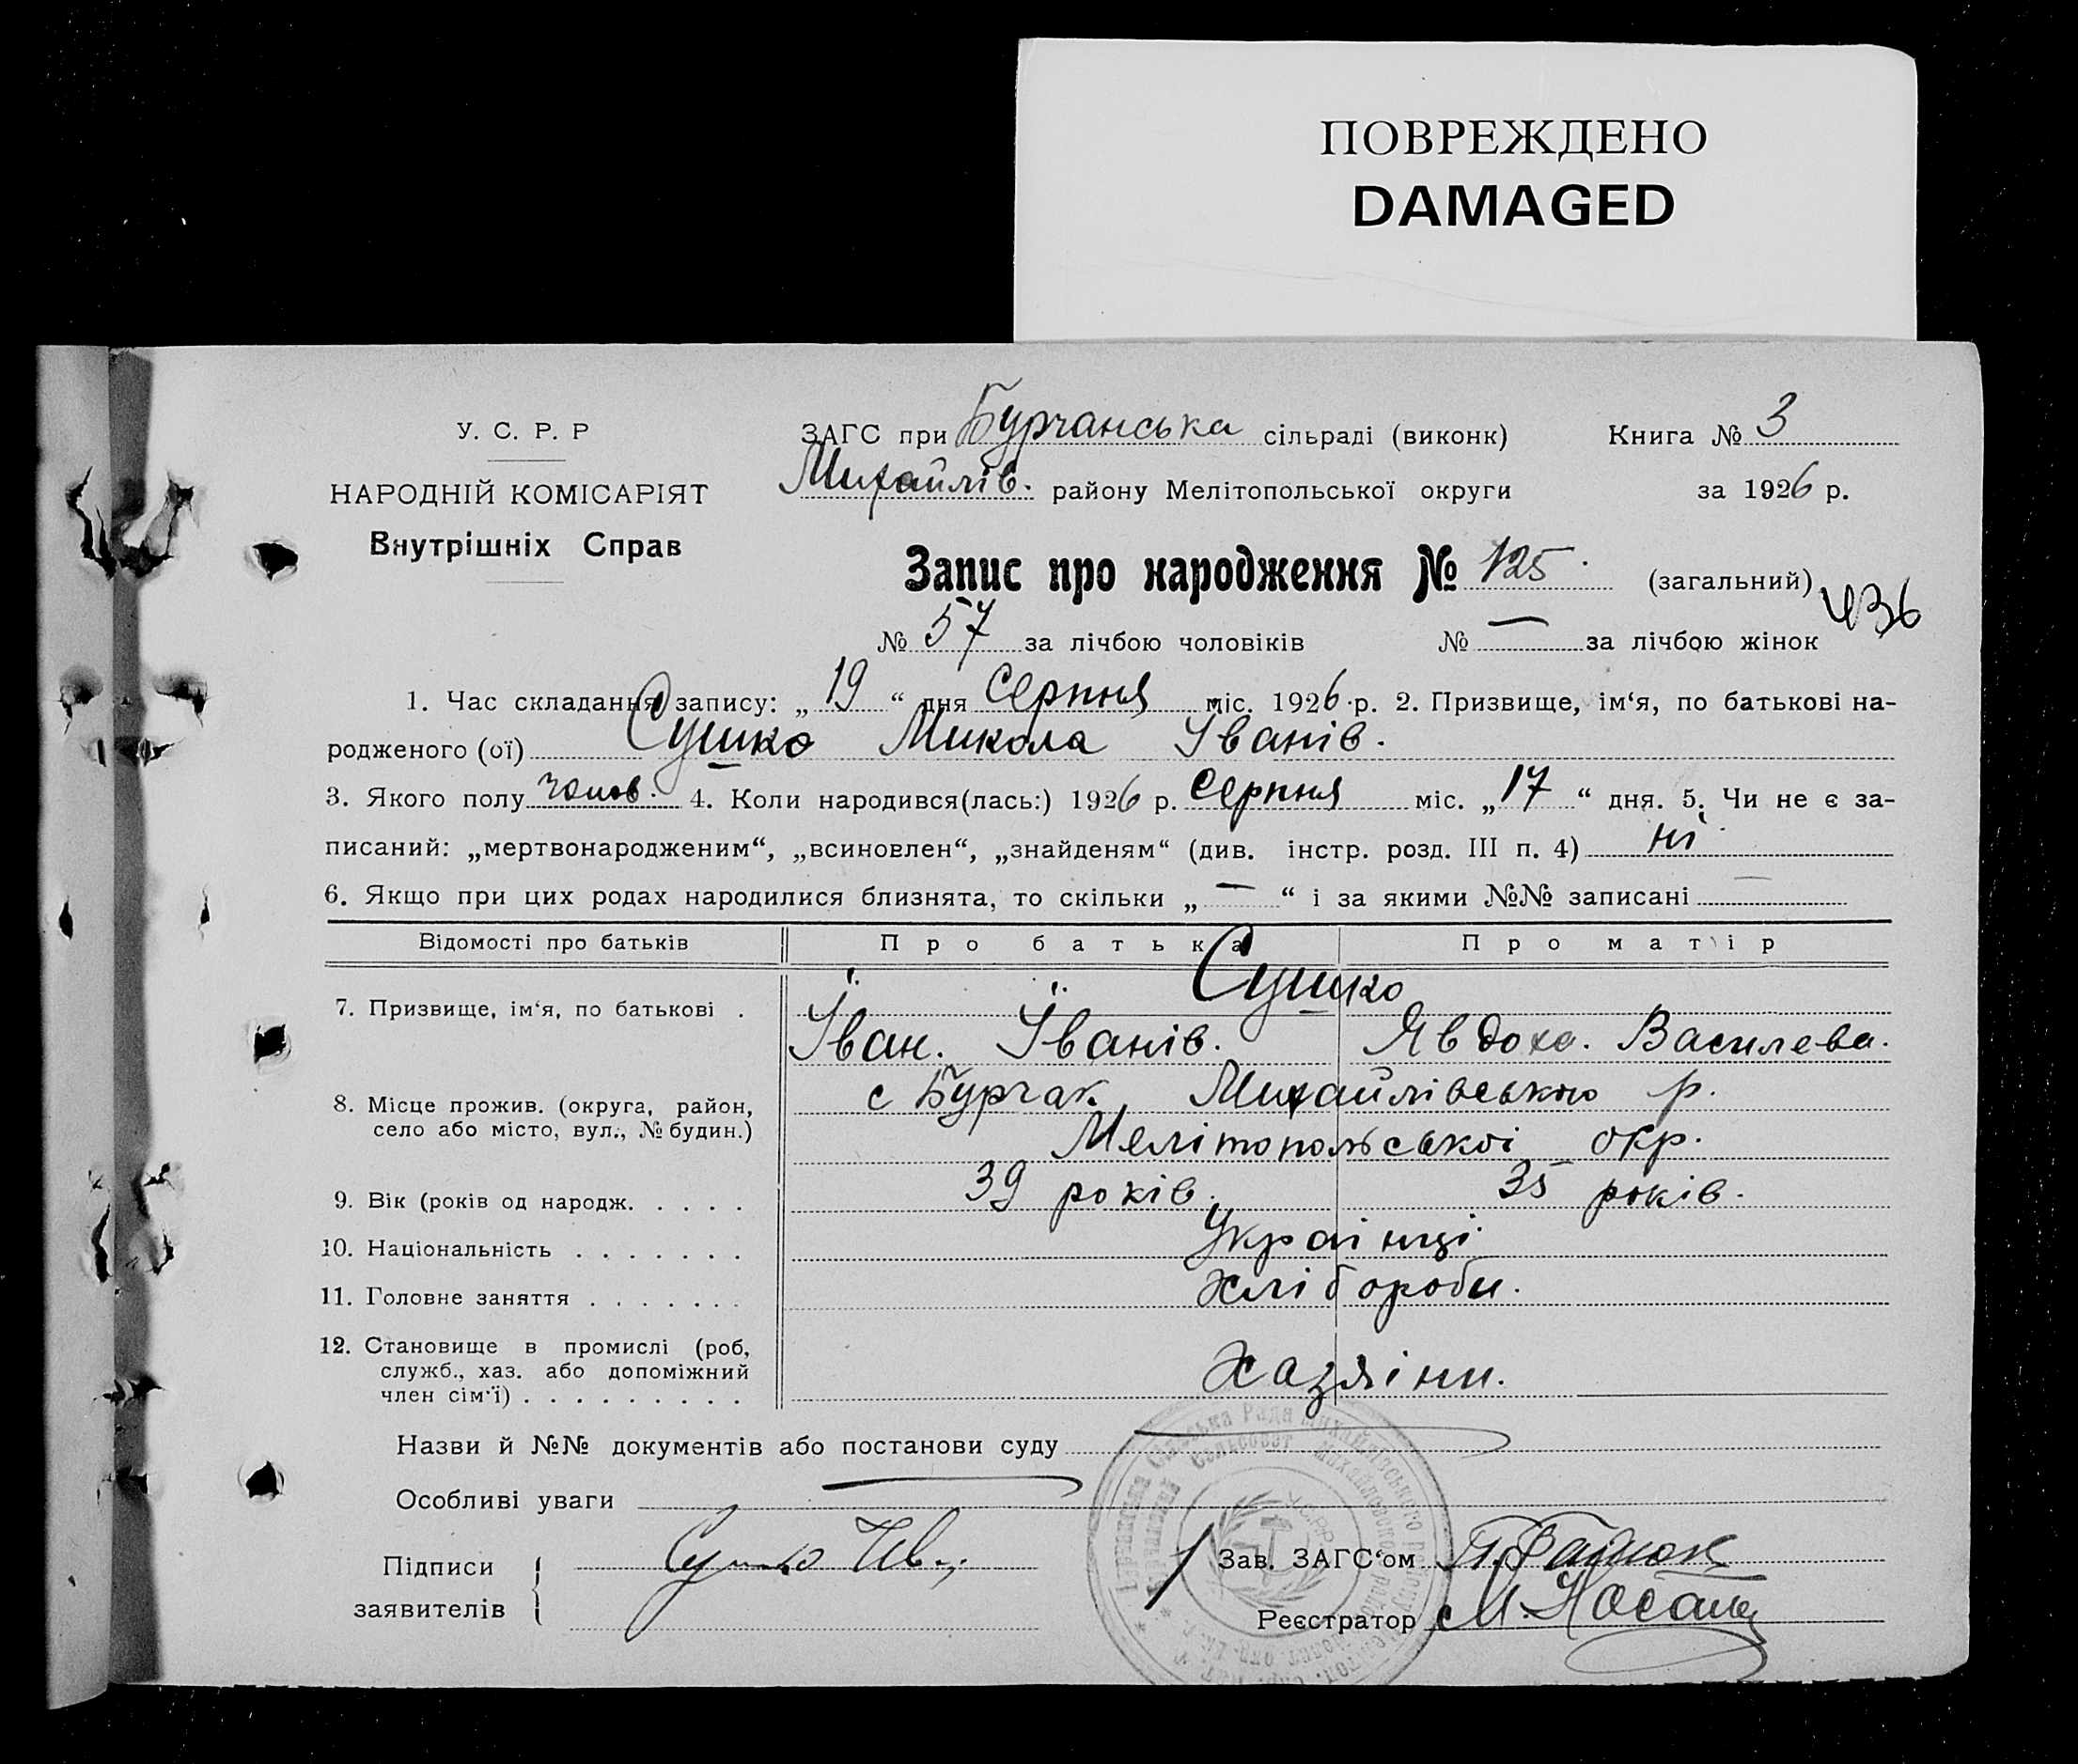 ПОВРЕЖДЕНО
DAMAGED
У. С. Р. Р
НАРОДНІЙ КОМІСАРІЯТ
Внутрішніх Справ
ЗАГС при Бурчанська сільраді (виконк) Книга № 3
Михайлів. району Мелітопольської округи за 1926 р.
Запис про народження № 125. (загальний)
436
№ 57 за лічбою чоловіків № — за лічбою жінок
1. Час складання запису: „ 19 “ дня Серпня міс. 1926 р. 2. Призвище, ім‘я, по батькові на-
родженого (ої) Сушко Микола Іванів.
3. Якого полу чолов. 4. Коли народився(лась:) 1926 р. Серпня міс. „ 17 “ дня. 5. Чи не є за-
писаний: „мертвонародженим“, „всиновлен“, „знайденям“ (див. інстр. розд. III п. 4) ні
6. Якщо при цих родах народилися близнята, то скільки „ — “ і за якими №№ записані —
Відомості про батьків Про батька Про матір
Сушко
7. Призвище, ім‘я, по батькові . Їван. Їванів. Явдоха. Василева.
8. Місце прожив. (округа, район, село або місто, вул., № будин.) с Бурчак Михайлівською р.
Мелітопольскоі окр.
9. Вік (років од народж. . . . . 39 років. 35 років.
10. Національність . . . . . . . Украінці
11. Головне заняття . . . . . . . хлібороби.
12. Становище в промислі (роб,
служб., хаз. або допоміжний
член сім‘ї) . . . . . . . . . хазяіни.
Назви й №№ документів або постанови суду
Особливі уваги
Підписи
заявителів
Сушко Ив.
Зав. ЗАГС‘ом
Реєстратор М. Носань